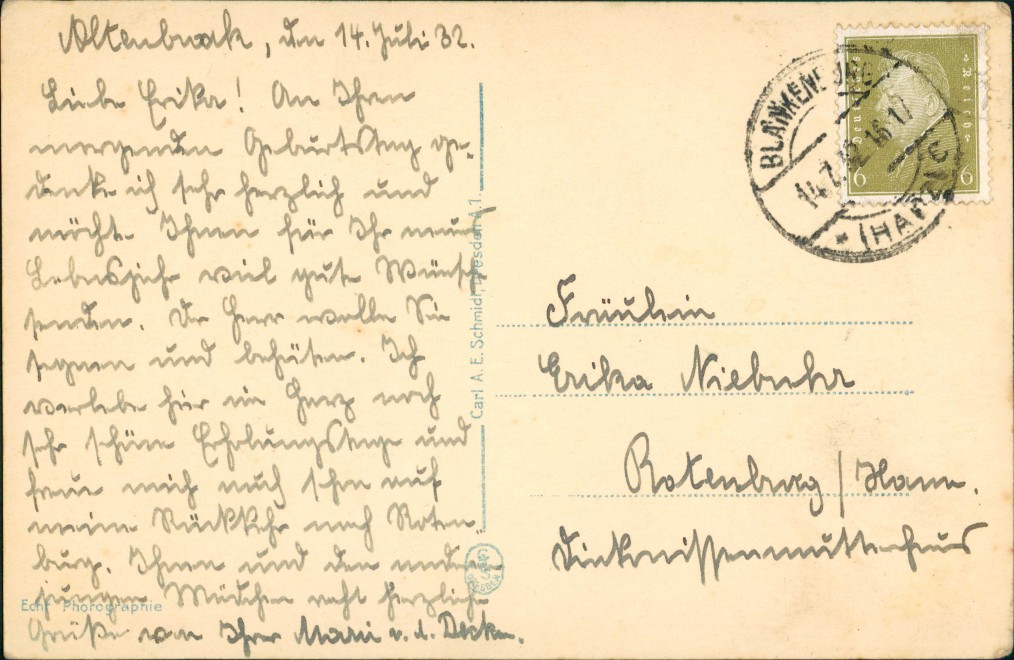 Altenbrak, den 14. Juli 32.
Liebe Erika! An Ihrem
morgenden Geburtstag ge-
denke ich sehr herzlich und
möchte Ihnen für Ihr neues
Lebensjahr viel gute Wünsche
senden. Der Herr wolle Sie
segnen und behüten. Ich
verlebe hier im Harz noch
sehr schöne Erholungstage und
freue mich auch schon auf
meine Rückkehr nach Roten-
burg. Ihnen und den anderen
jungen Mädchen recht herzliche
Grüße von Ihrer Marie v. d. Decken.
Echt Photographie
Carl A. E. Schmidt, Dresden-A 1.
Deutsches Reich
6 6
BLANKENBURG
14.7.32 16-17
* (HARZ) C
Fräulein
Erika Niebuhr
Rotenburg / Hann.
Diakonissenmutterhaus